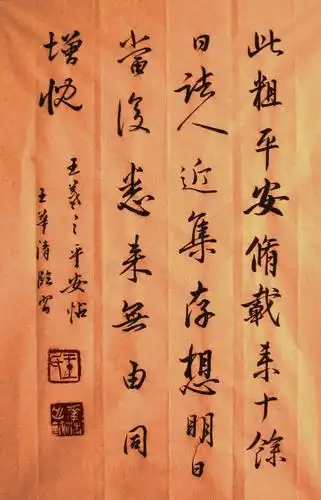 此粗平安脩載来十餘
日諸人近集存想明日
當復悉来無由同
增慨
王羲之平安帖
王華清臨習